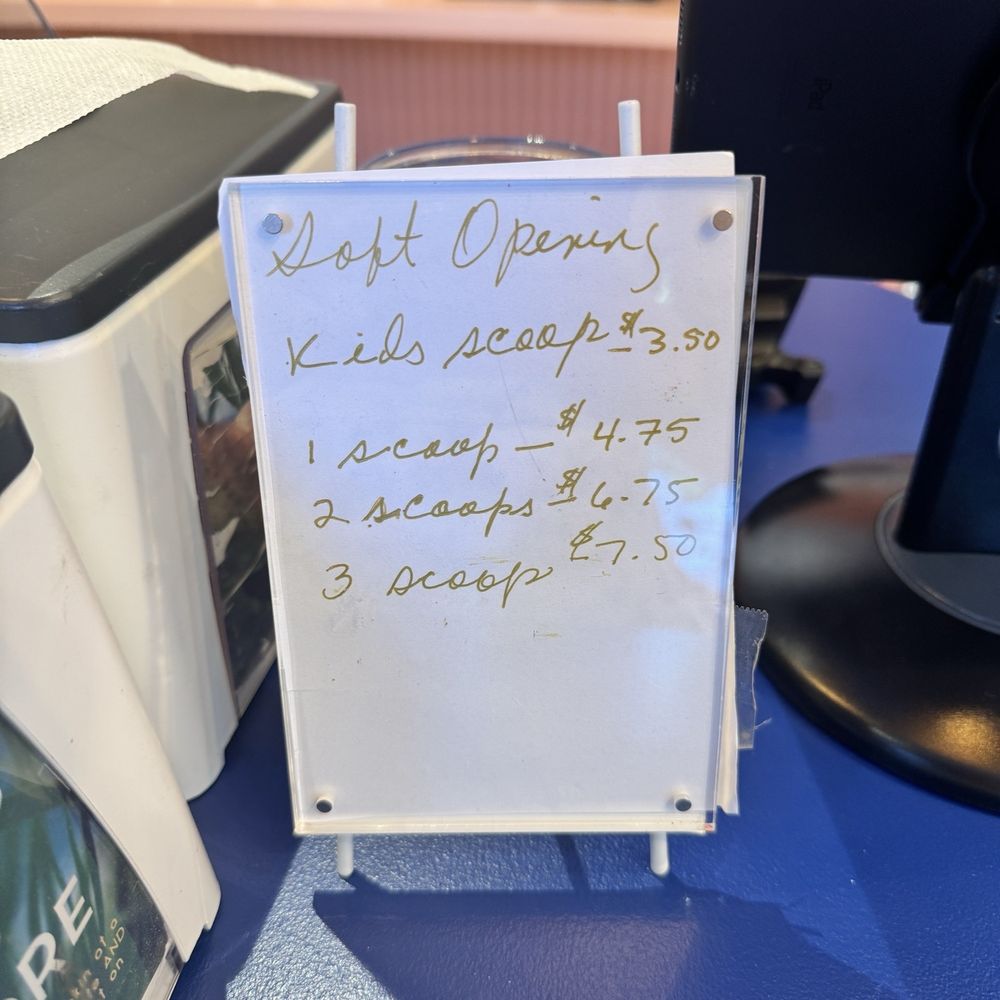 Soft Opening
Kids scoop - $3.50
1 scoop - $4.75
2 scoops - $6.75
3 scoop $7.50
iPad
RE
AND